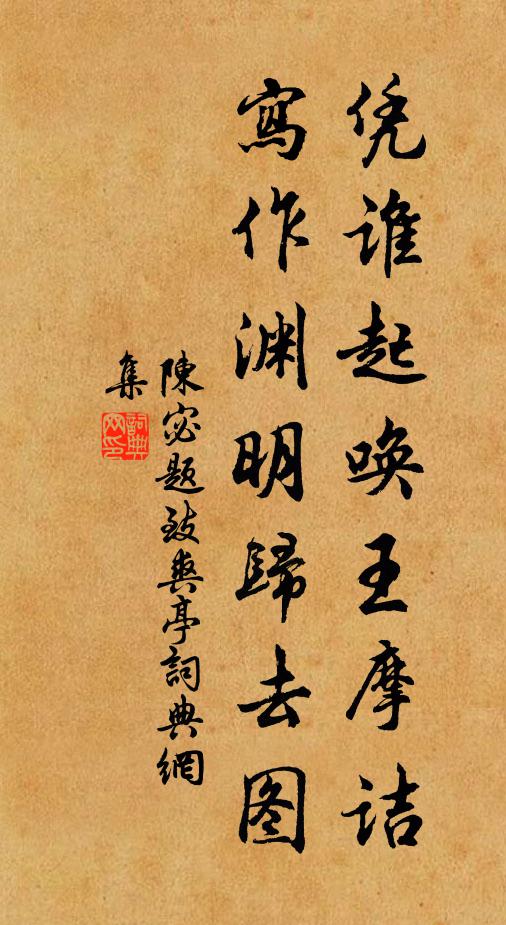 凭谁起唤王摩诘
写作渊明歸去图
陳宓題致爽亭詞典網
集
詞典
网印